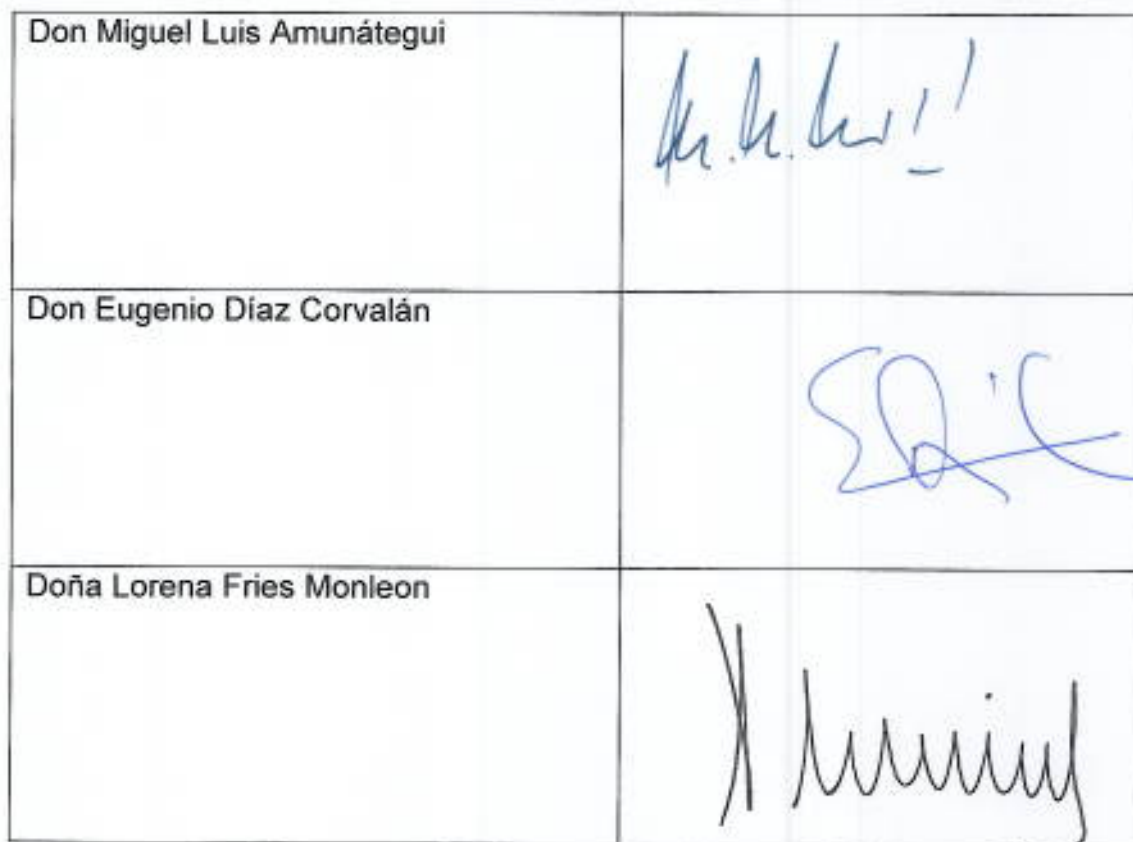 Don Miguel Luis Amunátegui
Don Eugenio Díaz Corvalán
Doña Lorena Fries Monleon